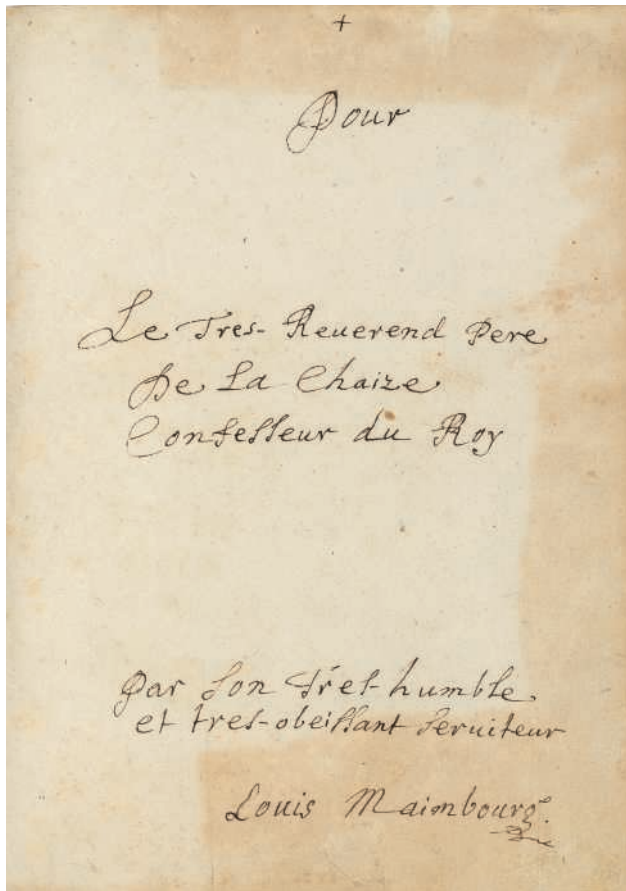 +
Pour
Le Tres-Reuerend Pere
De La Chaize
Confesseur du Roy
Par son tres-humble
et tres-obeissant seruiteur
Louis Maimbourg.